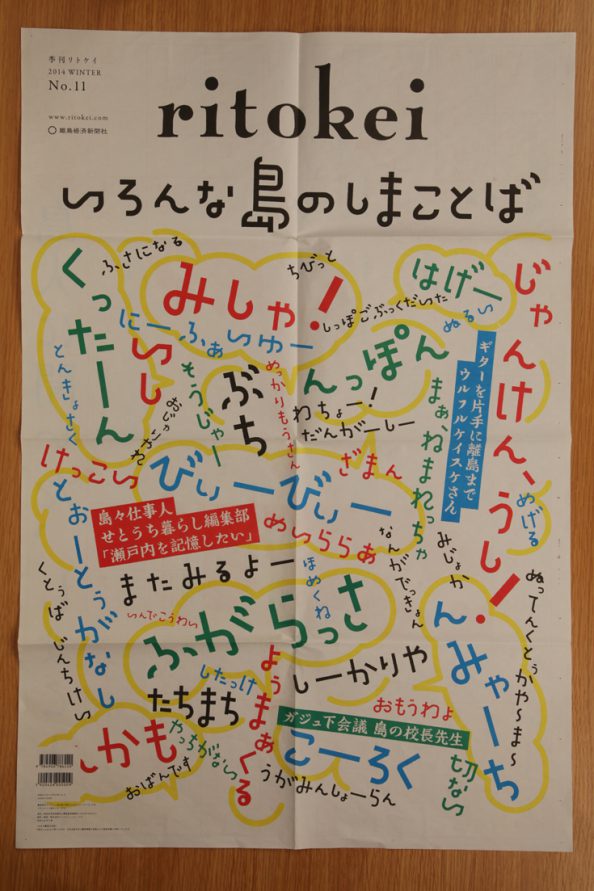 季刊リトケイ
2014 WINTER
No.11
www.ritokei.com
離島経済新聞社
ritokei
いろんな島のしまことば
ふさになる
くったーん
みしゃ!
ちびっと
はげー
じゃんけん、うし!
しっぽごぶっくだいた
ぬるい
にーふぁいゆー
いし
とんきょさく
そうじゃー
おじゃりやれ
ぶち
めっかりもうさん
んっぽん
わちょー!
だんがーしー
まぁ、ねまれっちゃ
ギターを片手に離島まで
ウルフルケイスケさん
けっこい
びぃーびぃー
ざまん
めげる
島々仕事人
せとうち暮らし編集部
「瀬戸内を記憶したい」
めぃららぁ
とぉーとぅがなし
なんがでっきょん
みじょか
ぬってんくとぅがや〜ま〜
またみるよー
ほめくね
くとぅば じんちけい
いんでこうわい
ふがらっさ
んみゃーち
したっけ
ようまぁくる
しーかりや
たちまち
おもうわょ
ガジュ下会議 島の校長先生
しかも
やっちがない
こーろく
切ない
おばんです
うがみんしょーらん